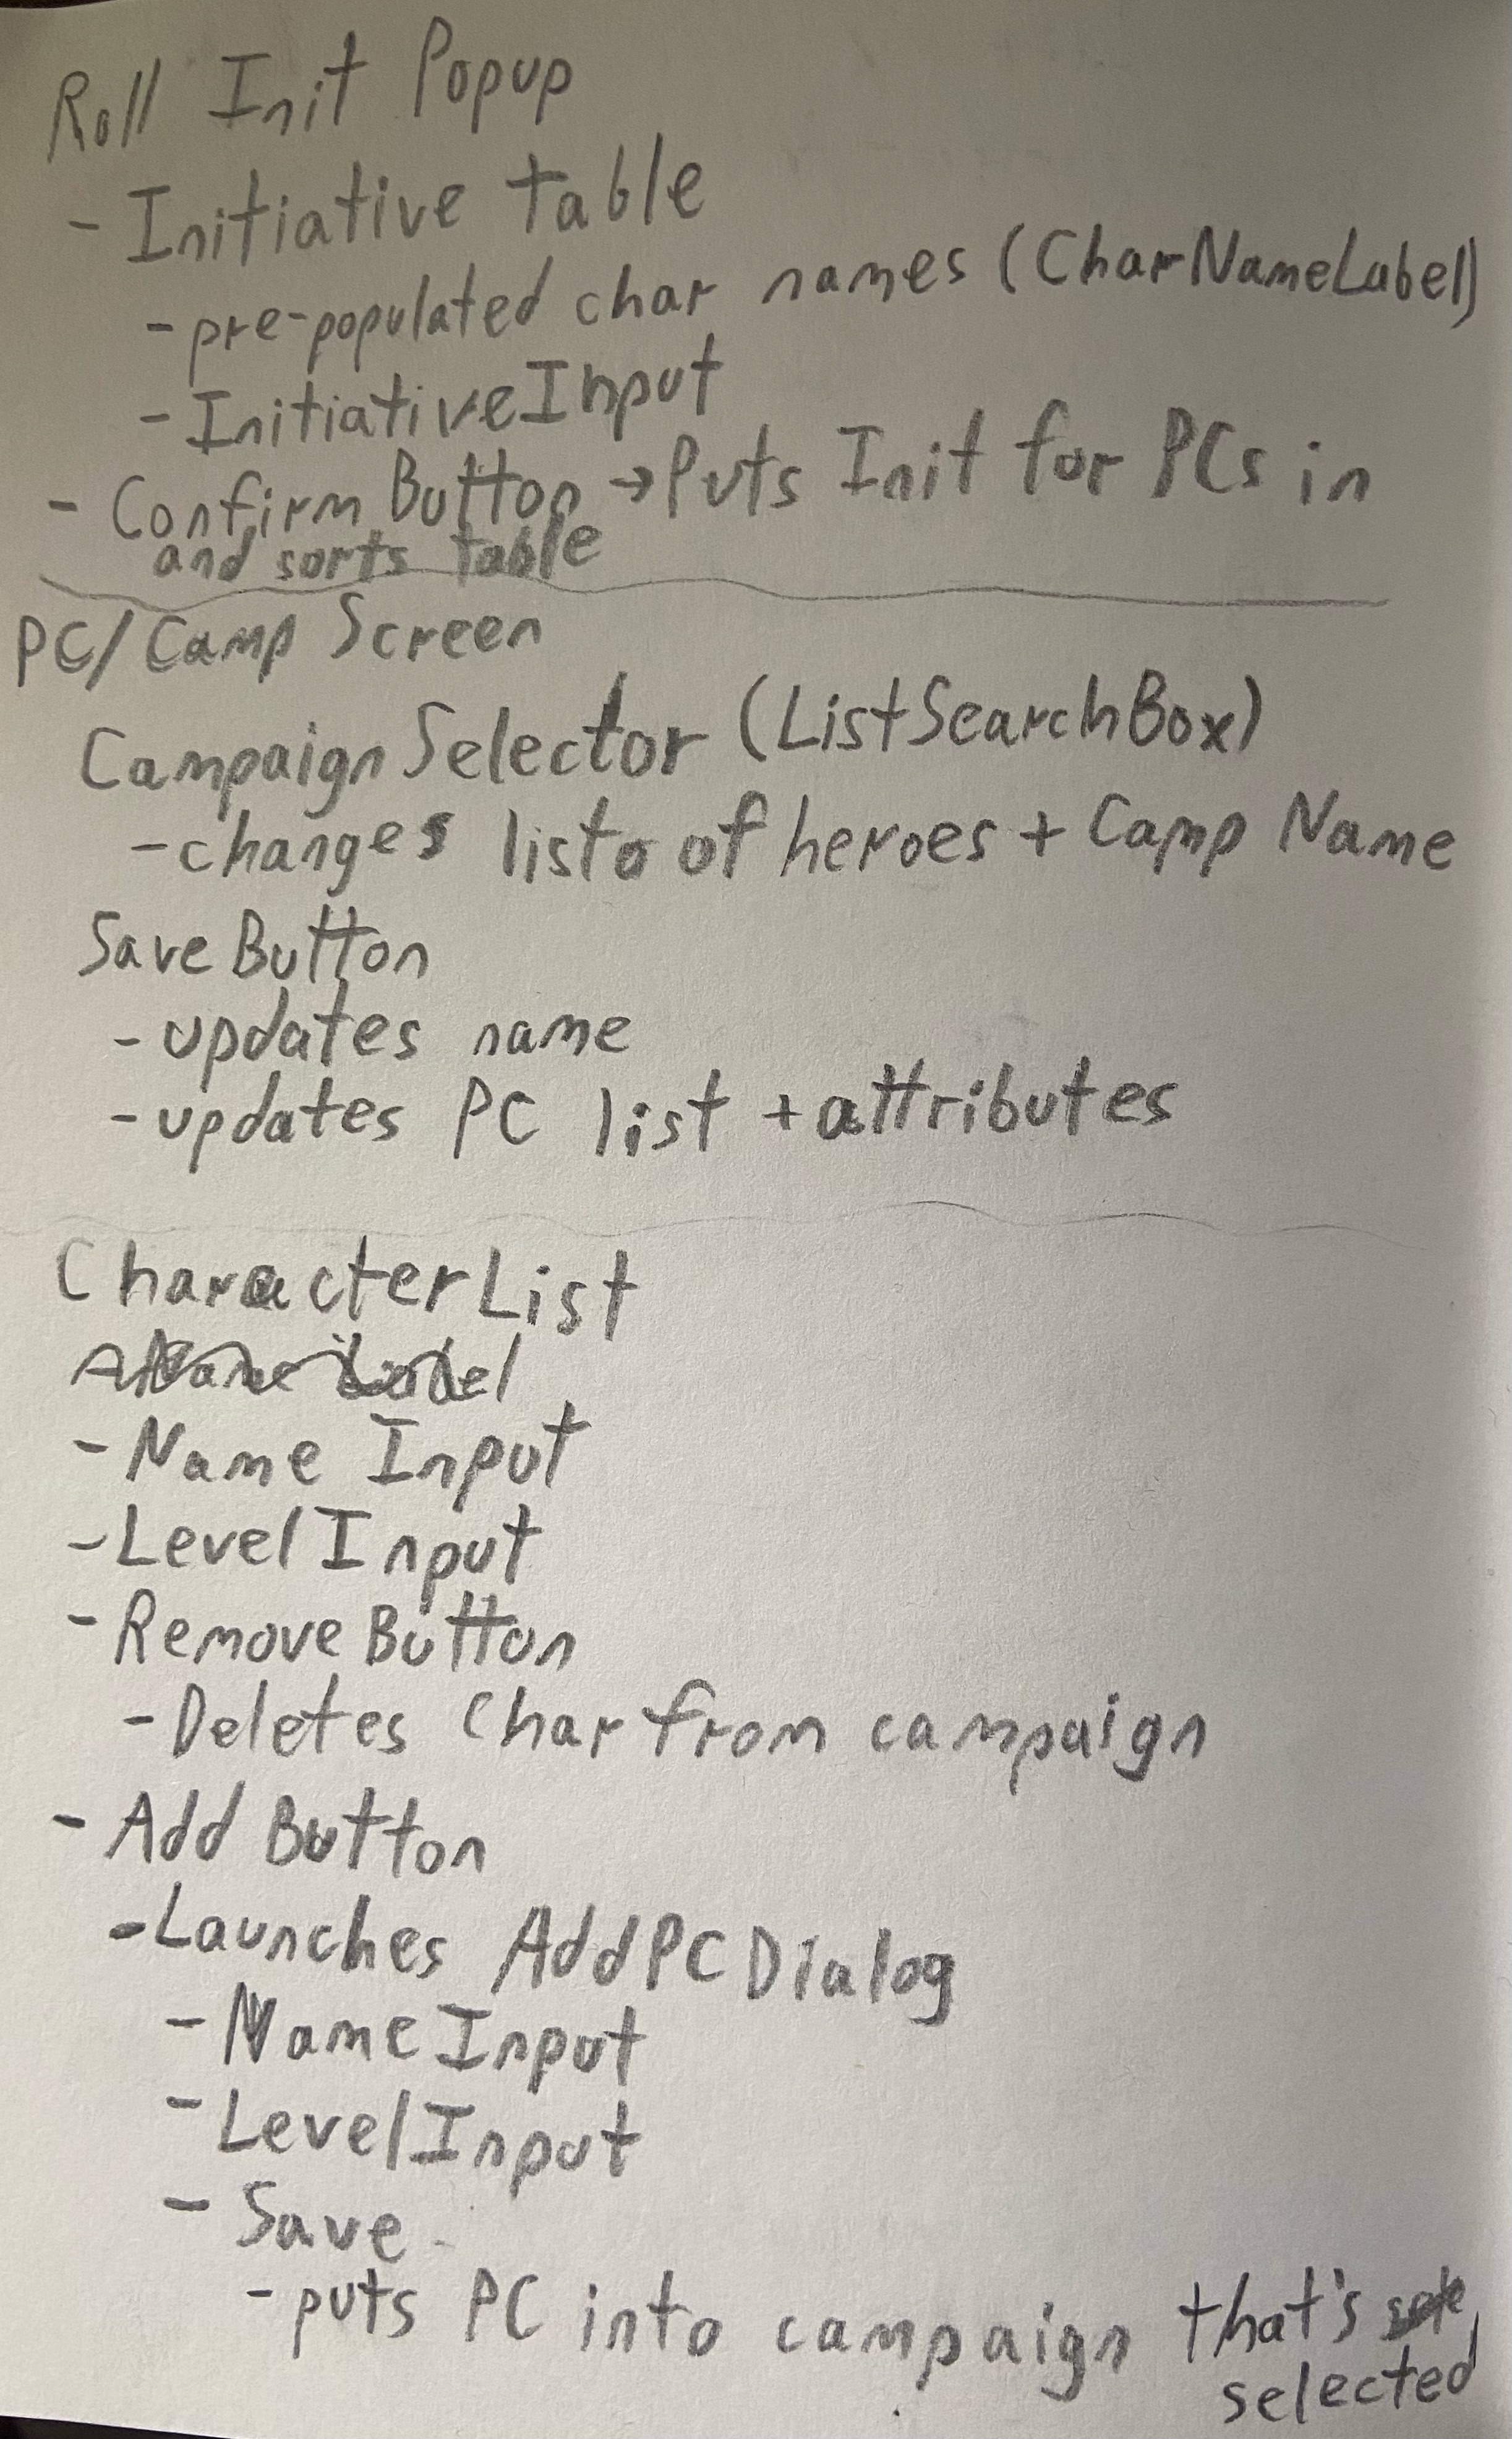 Roll Init Popup
- Initiative table
- pre-populated char names (CharNameLabel)
- InitiativeInput
- Confirm Button → Puts Init for PCs in
and sorts table
PC/Camp Screen
Campaign Selector (ListSearchBox)
- changes listo of heroes + Camp Name
Save Button
- updates name
- updates PC list + attributes
CharacterList
- Name Input
- Level Input
- Remove Button
- Deletes Char from campaign
- Add Button
- Launches AddPCDialog
- Name Input
- Level Input
- Save
- puts PC into campaign that's
selected